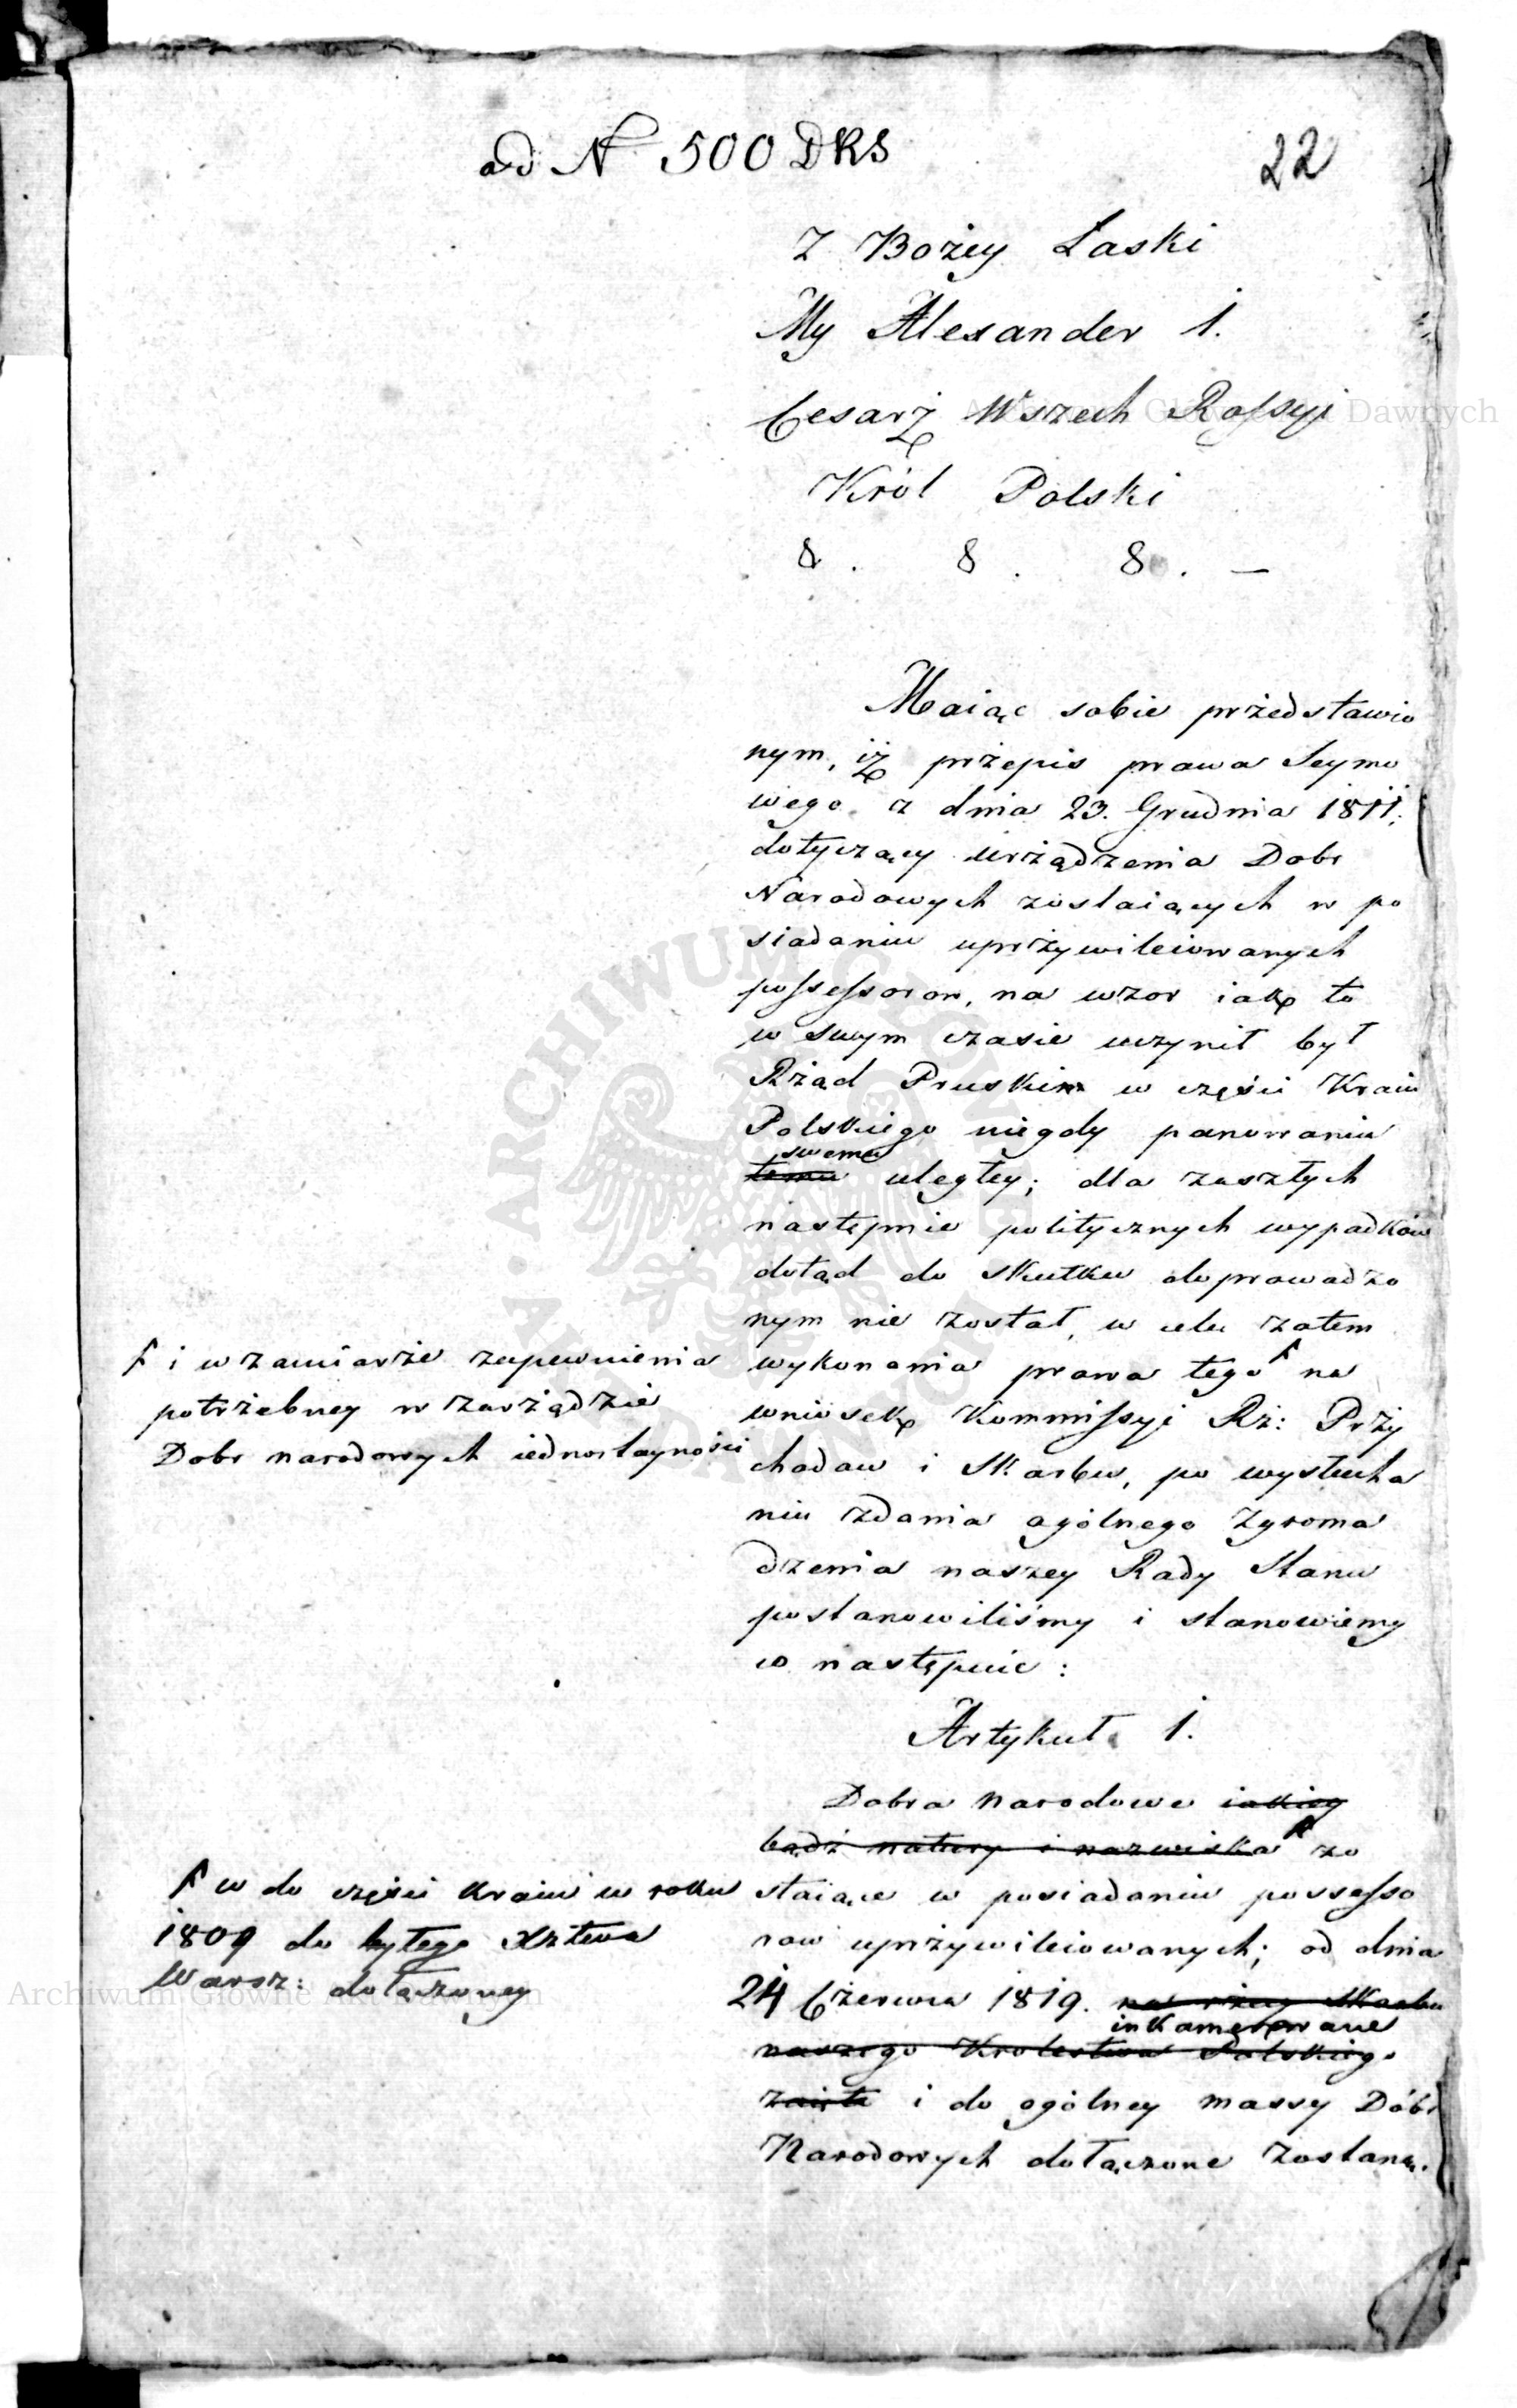 ad N 500 DRS
22
Z Bożey Łaski
My Alexander 1.
Cesarz Wszech Rossyi
Król Polski
&. &. &. —
Maiąc sobie przedstawio
nym, iż przepis prawa Seymo
wego z dnia 23. Grudnia 1811.
dotyczący urządzenia Dobr
Narodowych zostaiących w po
siadaniu uprzywileiowanych
possessorow, na wzor iak to
w swym czasie uczynił był
Rząd Pruski w części Kraiu
Polskiego niegdy panowaniu
swemu
temu uległey; dla zaszłych
następnie politycznych wypadków
dotąd do skutku doprowadzo
nym nie został, w celu zatem
wykonania prawa tego na
wniosek Kommissyi Rz: Przy
chodow i Skarbu, po wysłucha
niu zdania ogólnego Zgroma
dzenia naszey Rady Stanu
postanowiliśmy i stanowiemy
co następuie:
i w zamiarze zapewnienia
potrzebney w zarządzie
Dobr narodowych iednostayności
Artykuł 1.
Dobra Narodowe iakiey
bądź natury i nazwiska zo
staiące w posiadaniu possesso
row uprzywileiowanych; od dnia
24 Czerwca 1819. na rzecz Skarbu
inkamerowane
naszego Krolestwa Polskiego
zaięte i do ogólney massy Dóbr
Narodowych dołączone zostaną.
w do części kraiu w roku
1809 do byłego Xztwa
Warsz: dołączoney
Archiwum Główne Akt Dawnych